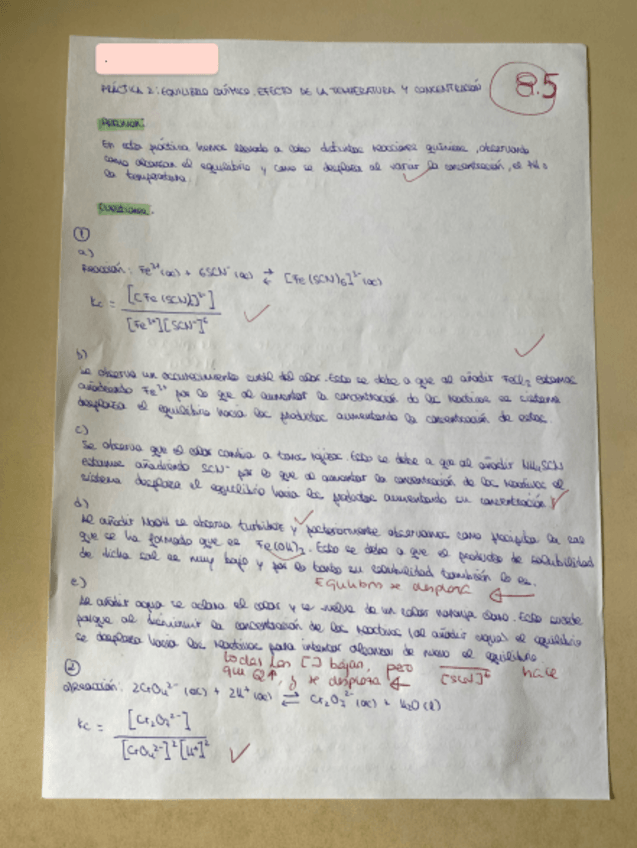 PRÁCTICA 2: EQUILIBRIO QUÍMICO. EFECTO DE LA TEMPERATURA Y CONCENTRACIÓN
8.5
RESUMEN:
En esta práctica hemos llevado a cabo distintas reacciones químicas, observando
como alcanzan el equilibrio y como se desplaza al variar la concentración, el pH o
la temperatura.
Cuestiones.
1
a)
Reacción: Fe³⁺(ac) + 6SCN⁻(ac) ⇄ [Fe(SCN)6]³⁻(ac)
Kc = [[Fe(SCN)6]³⁻] / [Fe³⁺][SCN⁻]⁶
b)
Se observa un oscurecimiento del color. Esto se debe a que al añadir FeCl3 estamos
añadiendo Fe³⁺ por lo que al aumentar la concentración de los reactivos el sistema
desplaza el equilibrio hacia los productos aumentando la concentración de estos.
c)
Se observa que el color cambia a tonos rojizos. Esto se debe a que al añadir NH4SCN
estamos añadiendo SCN⁻ por lo que al aumentar la concentración de los reactivos el
sistema desplaza el equilibrio hacia los productos aumentando su concentración
d)
Al añadir NaOH se observa turbidez y posteriormente observamos como precipita la sal
que se ha formado que es Fe(OH)3. Esto se debe a que el producto de solubilidad
de dicha sal es muy bajo y por lo tanto su solubilidad también lo es.
Equilibrio se desplaza ←
e)
Al añadir agua se aclara el color y se vuelve de un color naranja claro. Esto sucede
porque al disminuir la concentración de los reactivos (al añadir agua) el equilibrio
se desplaza hacia los reactivos para intentar alcanzar de nuevo el equilibrio
todas las [ ] bajan, pero [SCN]⁶ hace
que Q↑, y se desplaza ←
2
a) Reacción: 2CrO4²⁻ (ac) + 2H⁺(ac) ⇄ Cr2O7²⁻ (ac) + H2O (l)
Kc = [Cr2O7²⁻] / [CrO4²⁻]²[H⁺]²